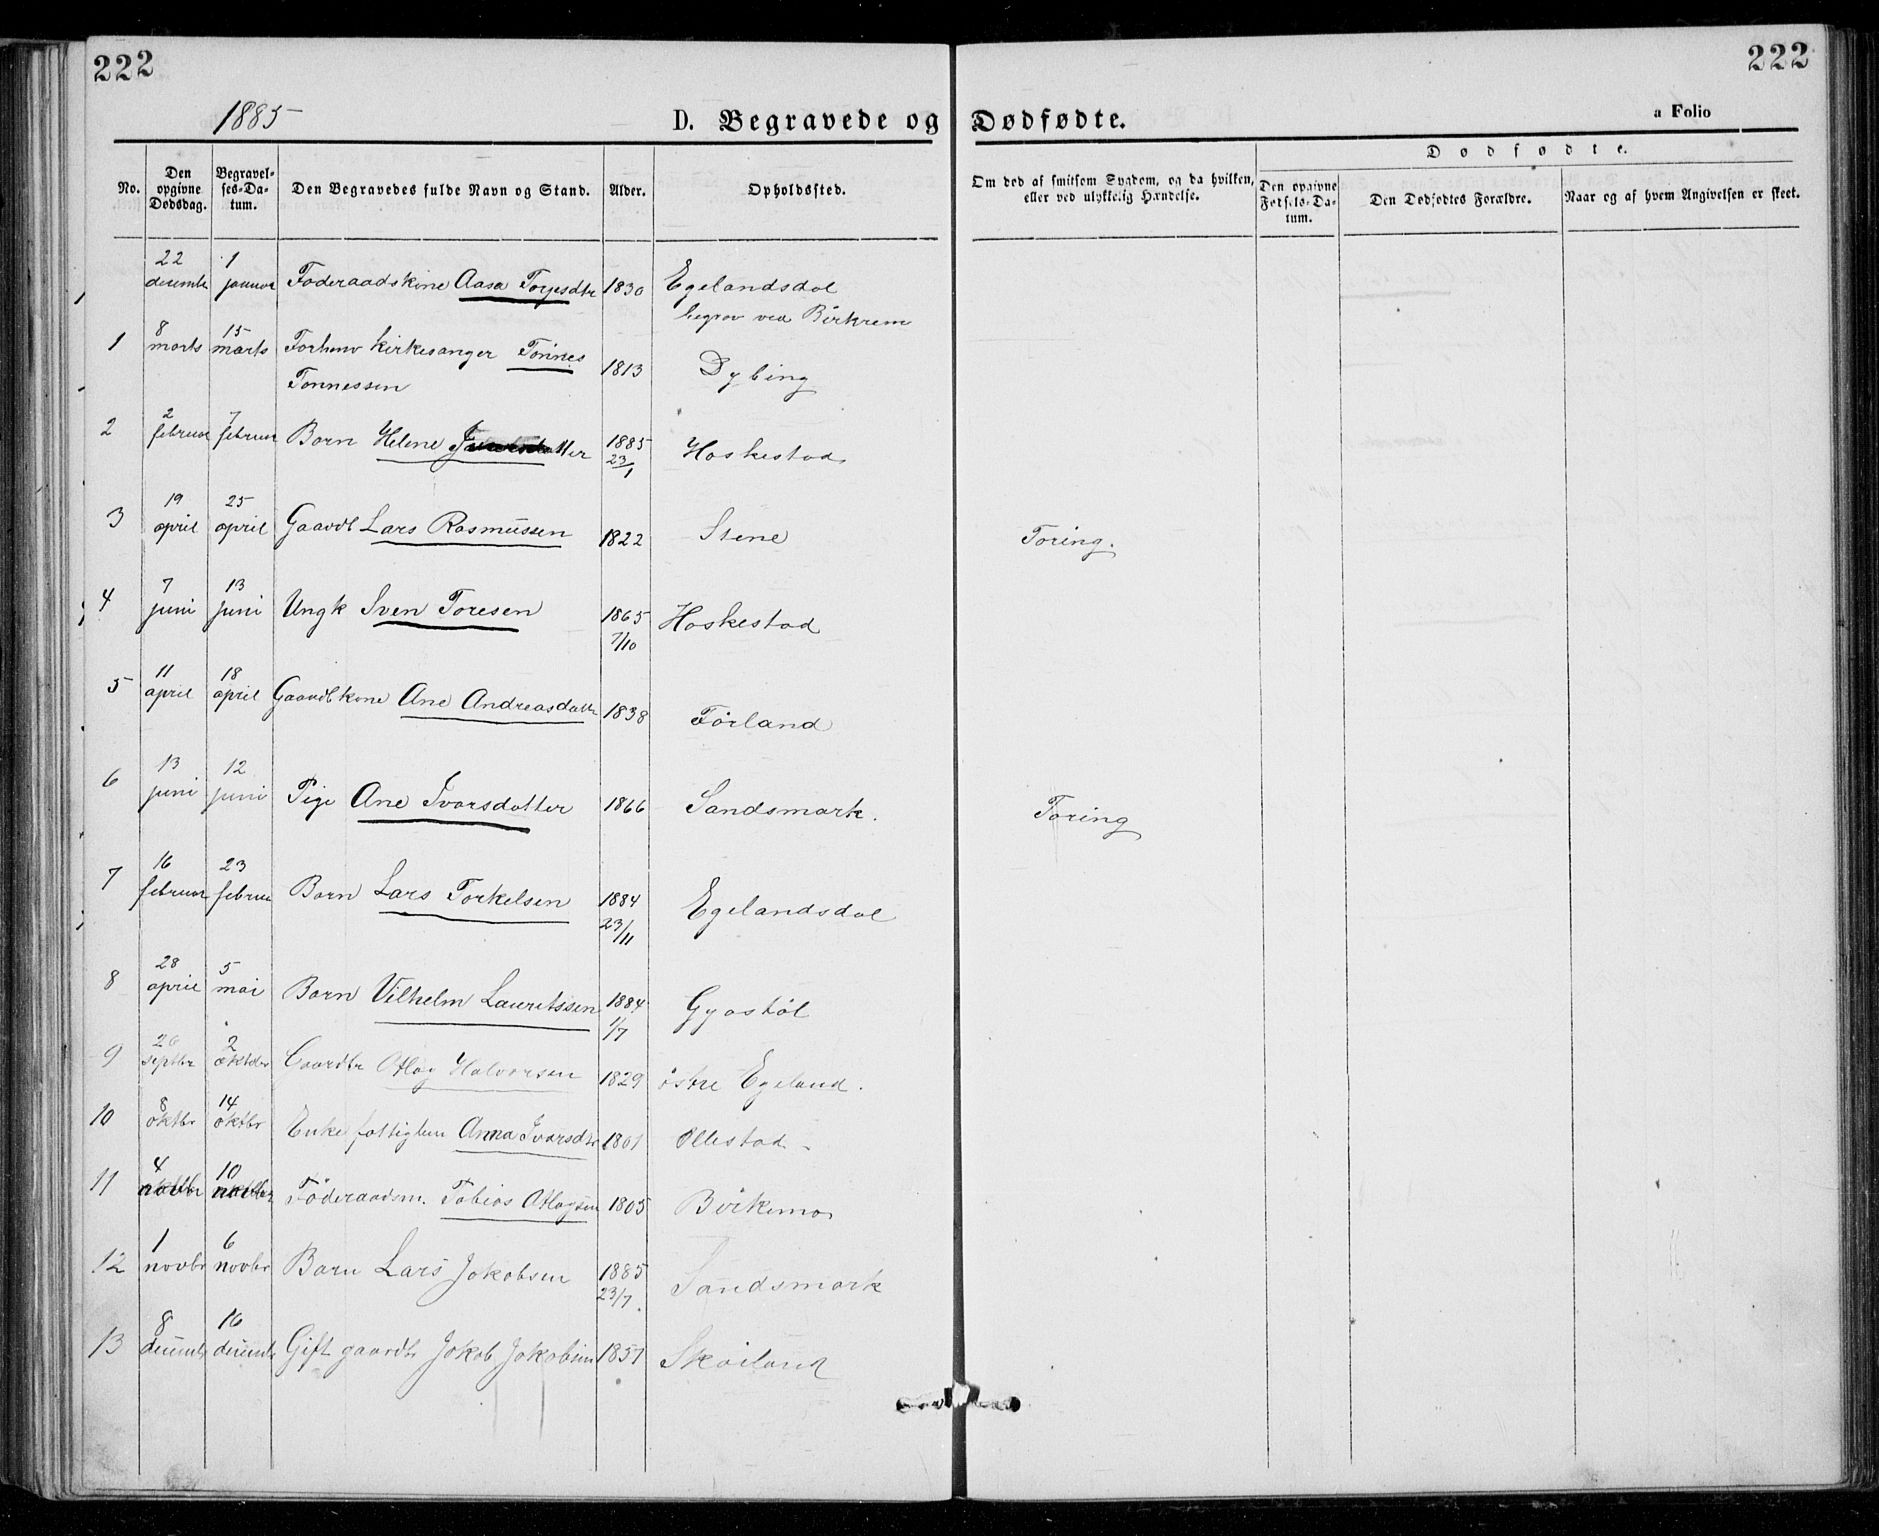 222
222
1885
D. Begravede og Dødfødte.
a Folio
No.
Den opgivne Dødsdag.
Begravelses-Datum.
Den Begravedes fulde Navn og Stand.
Alder.
Opholdssted.
Om død af smitsom Sygdom, og da hvilken, eller ved ulykkelig Hændelse.
Dødfødte.
Den opgivne Fødsels-Datum.
Den Dødfødtes Forældre.
Naar og af hvem Angivelsen er skeet.
22 decembr 1 januar Føderaadskone Aasa Torjesdtr 1830 Egelandsdal
begrav ved Birkrem
1 8 marts 15 marts Forhenv kirkesanger Tönnes 1813 Dybing
Tønnessen
2 2 februar 7 februar Barn Helene 1885 23/1 Haskestad
3 19 april 25 april Gaardb Lars Rasmüssen 1822 Stene Tæring.
4 7 juni 13 juni Ungk Sven Toresen 1865 7/10 Haskestad
5 11 april 18 april Gaardbkone Ane Andreasdattr 1838 Førland
6 13 juni 12 juni Pige Ane Ivarsdatter 1866 Sandsmark. Tæring
7 16 februar 23 februar Barn Lars Torkelsen 1884 23/11 Egelandsdal
8 28 april 5 mai Barn Vilhelm Lauritssen 1884 1/7 Gyastøl
9 26 septbr 2 oktober Gaardbr Atlag Halvorsen 1829 östre Egeland.
10 8 oktbr 14 oktbr Enke fattiglem Anna Ivarsdtr 1801 Ollestad
11 4 10 Föderaadsm. Tobias Atlagsen 1805 Birkemo
12 1 novbr 6 novbr Barn Lars Jakobsen 1885 23/7 Sandsmark
13 8 decembr 16 decembr Gift gaardbr Jakob Jakobsen 1851 Skoiland